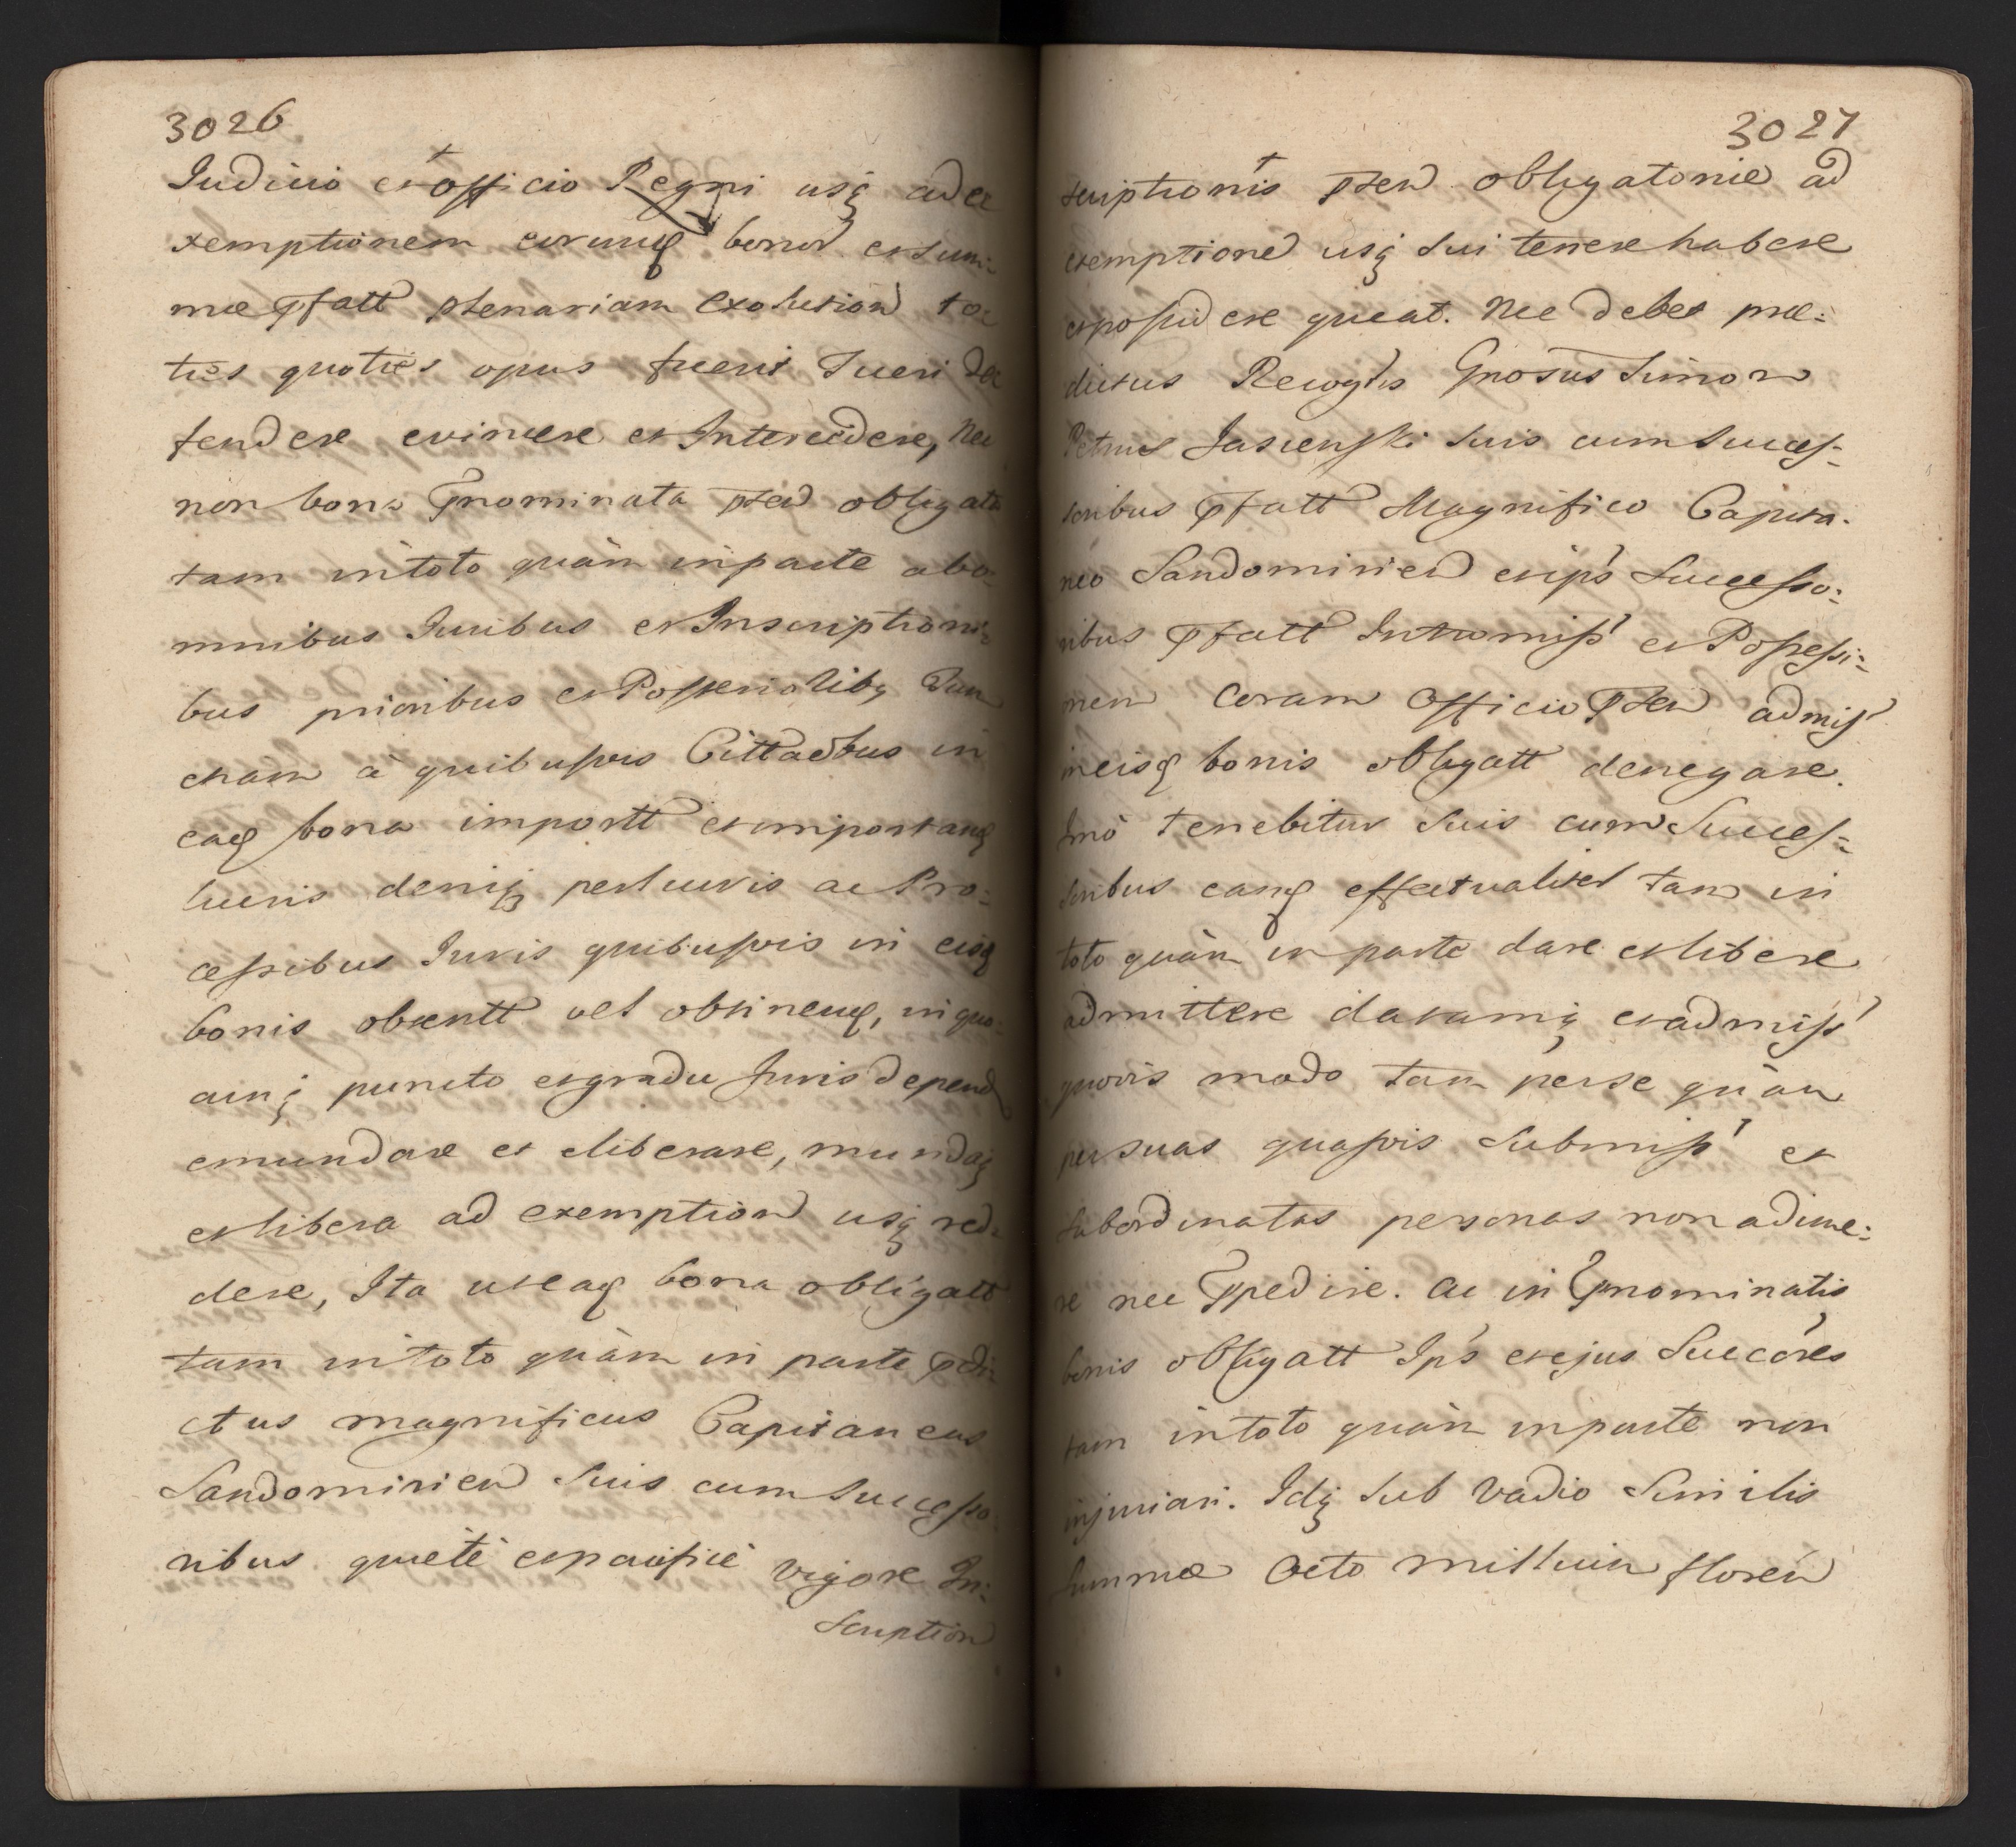 3026
Judicio et officio Regni usq ad e
xemptionem eorumq bonor et sum:
mæ pfatt plenariam exolution to:
ties quoties opus fuerit Tueri de
fendere evincere et Intercedere, Nec
non bona pnominata pten obligata
tam in toto quàm in parte ab o:
mnibus Juribus et Inscriptioni:
bus prioribus et Posteriolibq Tum
etiam à quibusvis Cittaõbus in
eaq bona importt et importanq
lucris deniq perlucris ac Pro:
cessibus Juris quibusvis in eisq
bonis obtentt vel obtinenq, in quo:
cunq puncto et gradu Juris depend
emundare et eliberare, mundaq
et libera ad exemption usq red:
dere, Ita ut eaq bona obligatt
tam in toto quàm in parte pdi:
ctus magnificus Capitaneus
Sandomirien Suis cum Successo:
ribus quietè et pacificè vigore In:
scription
3027
scriptionis pten obligatoriæ ad
exemptione usq sui tenere habere
et possidere queat. Nec debet præ:
dictus Recogns Gnosus Simon
Petrus Jasienski suis cum succes:
soribus pfatt Magnifico Capita:
neo Sandomirien et ips Successo:
ribus pfatt Intromiss et Possessi:
nem Coram Officio pten admiss
in eisq bonis obligatt denegare.
Imò tenebitur suis cum Succes:
soribus eanq effectualiter tam in
toto quàm in parte dare et libere
admittere datamq et admiss
quovis modo tam per se quàm
per suas quasvis Submiss et
subordinatas personas non adime:
re nec Ppedire. Ac in Pnominatis
bonis obligatt Ips et ejus Succores
tam in toto quàm in parte non
injuriari. Idq Sub vadio Similis
Summæ Octo millium floren